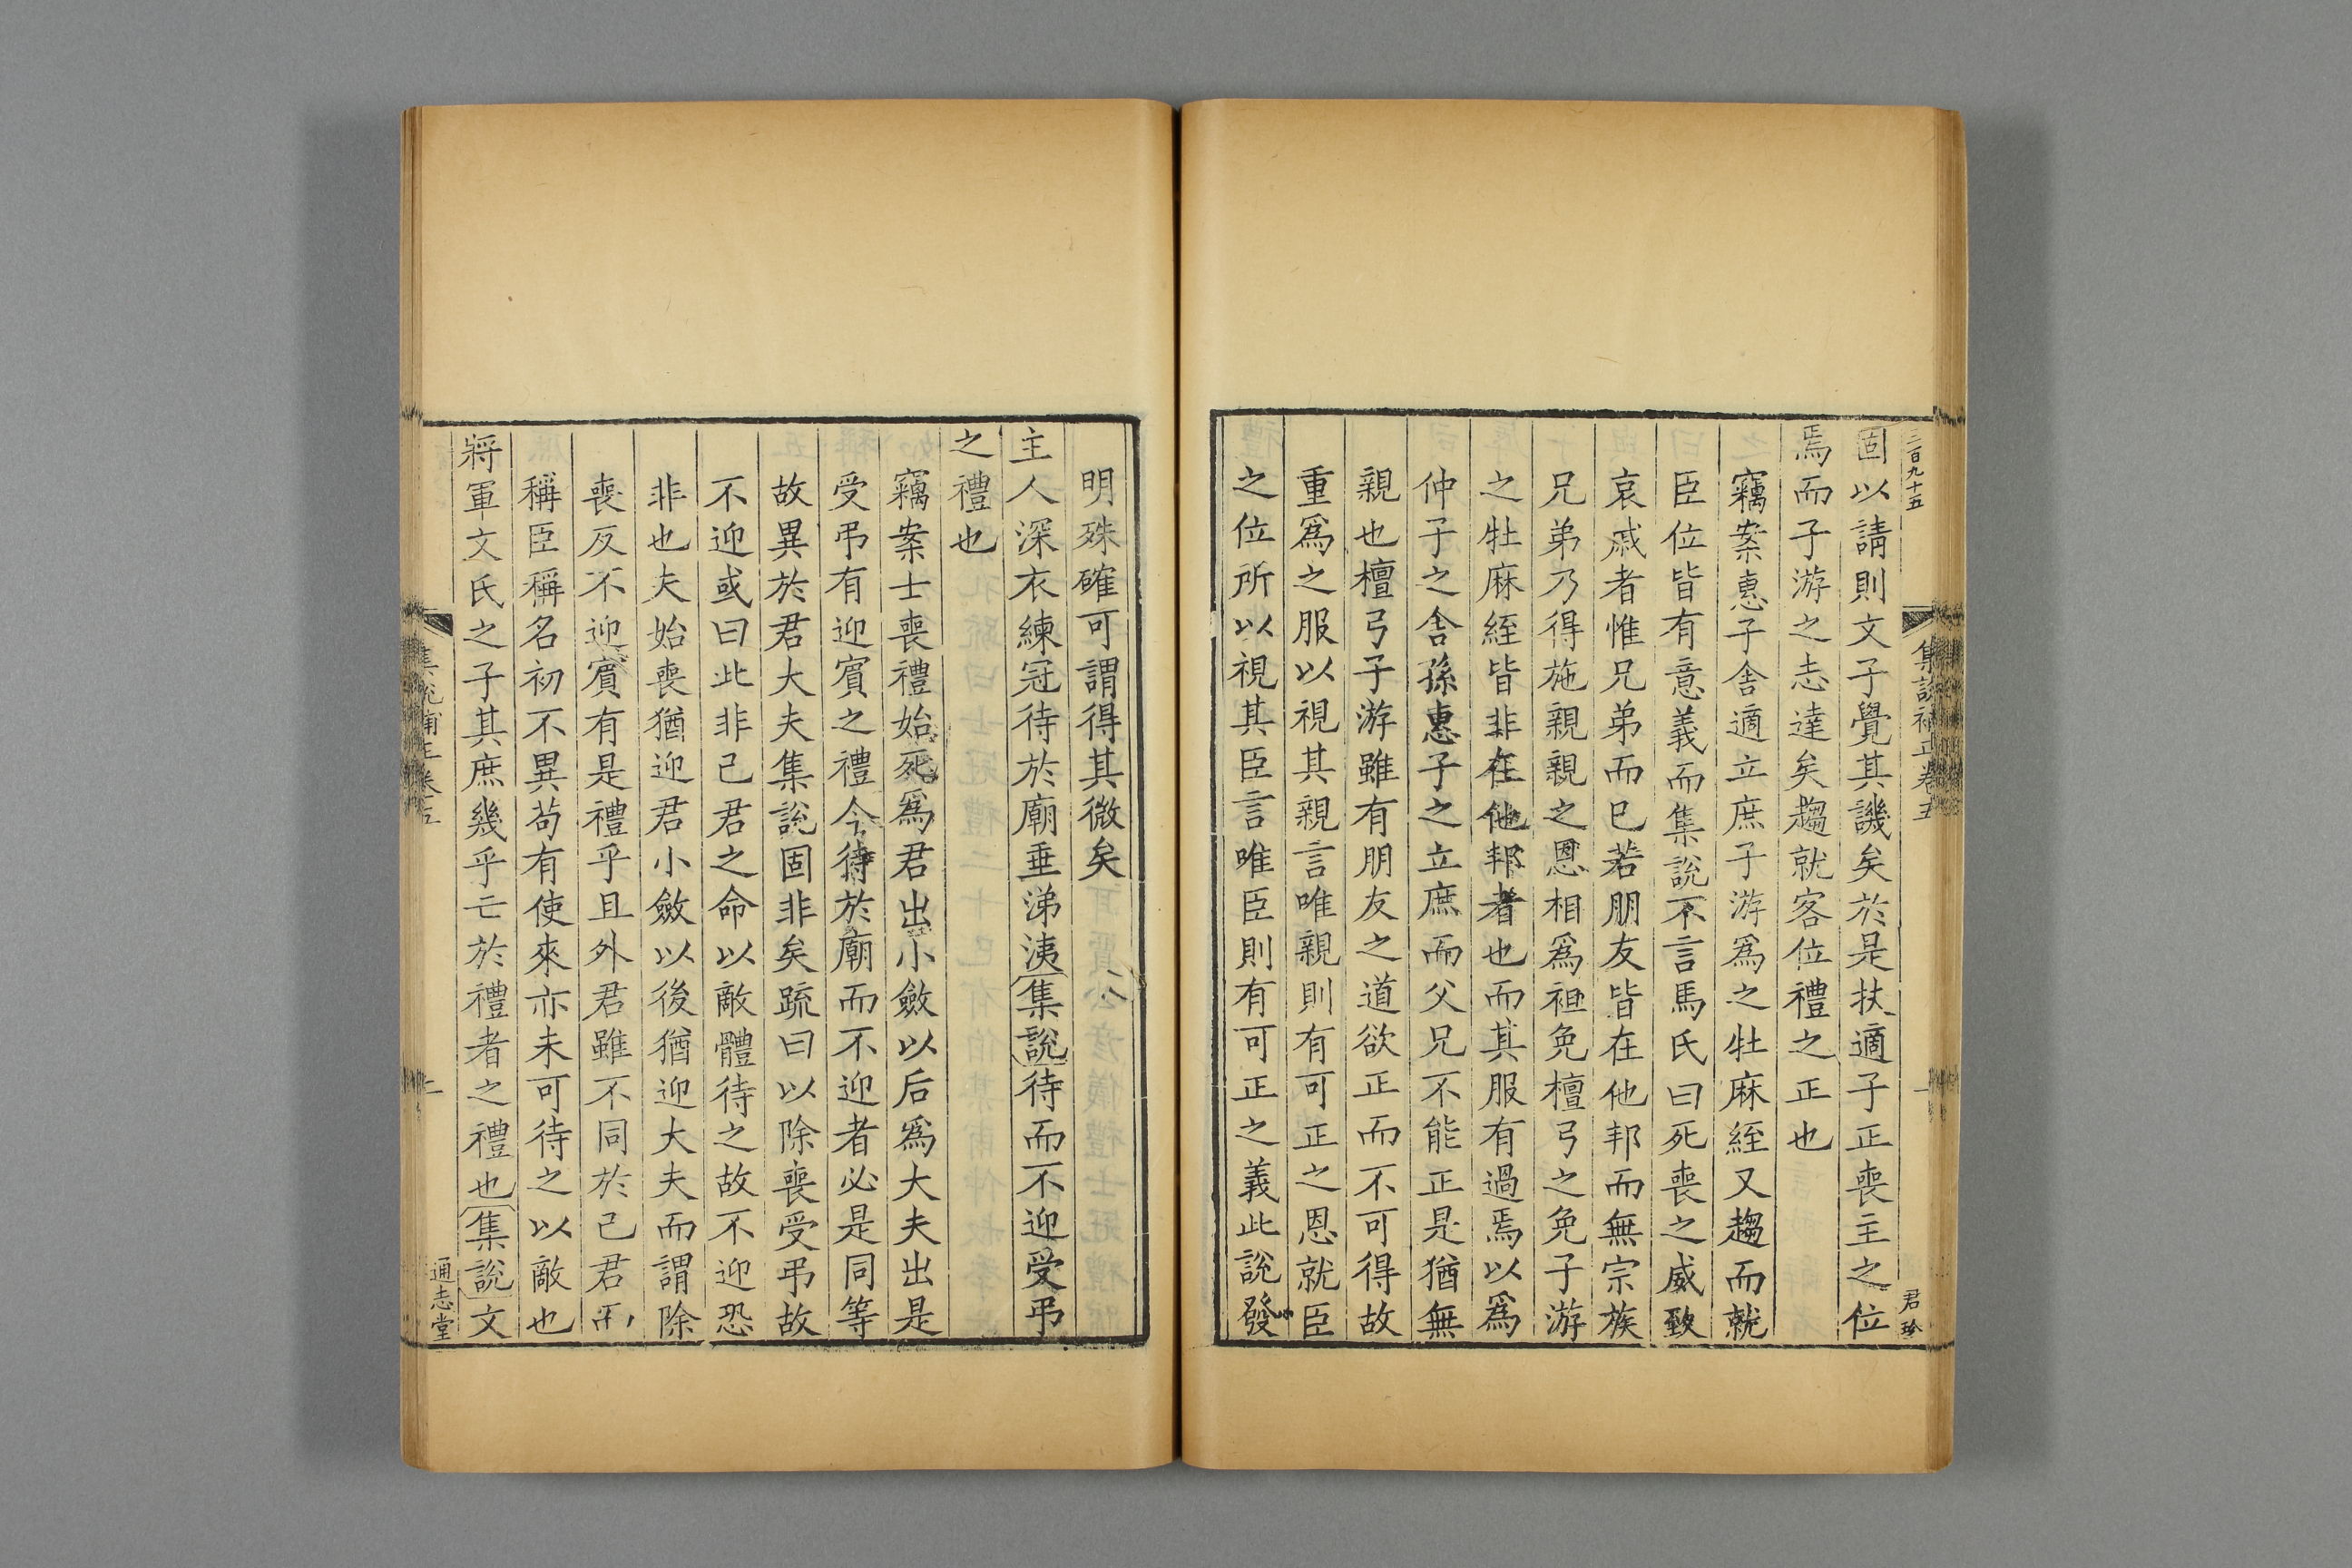 三百九十五
集說補正卷五
一
君珍
固以請則文子覺其譏矣於是扶適子正喪主之位
焉而子游之志達矣趨就客位禮之正也
竊案惠子舍適立庶子游爲之牡麻絰又趨而就
臣位皆有意義而集說不言馬氏曰死喪之威致
哀戚者惟兄弟而已若朋友皆在他邦而無宗族
兄弟乃得施親親之恩相爲袒免檀弓之免子游
之牡麻絰皆非在他邦者也而其服有過焉以爲
仲子之舍孫惠子之立庶而父兄不能正是猶無
親也檀弓子游雖有朋友之道欲正而不可得故
重爲之服以視其親言唯親則有可正之恩就臣
之位所以視其臣言唯臣則有可正之義此說發
明殊確可謂得其微矣
主人深衣練冠待於廟垂涕洟集說待而不迎受弔
之禮也
竊案士喪禮始死爲君出小斂以后爲大夫出是
受弔有迎賓之禮今待於廟而不迎者必是同等
故異於君大夫集說固非矣疏曰以除喪受弔故
不迎或曰此非己君之命以敵體待之故不迎恐
非也夫始喪猶迎君小斂以後猶迎大夫而謂除
喪反不迎賓有是禮乎且外君雖不同於己君而
稱臣稱名初不異苟有使來亦未可待之以敵也
將軍文氏之子其庶幾乎亡於禮者之禮也集說文
集說補正卷五
二
通志堂